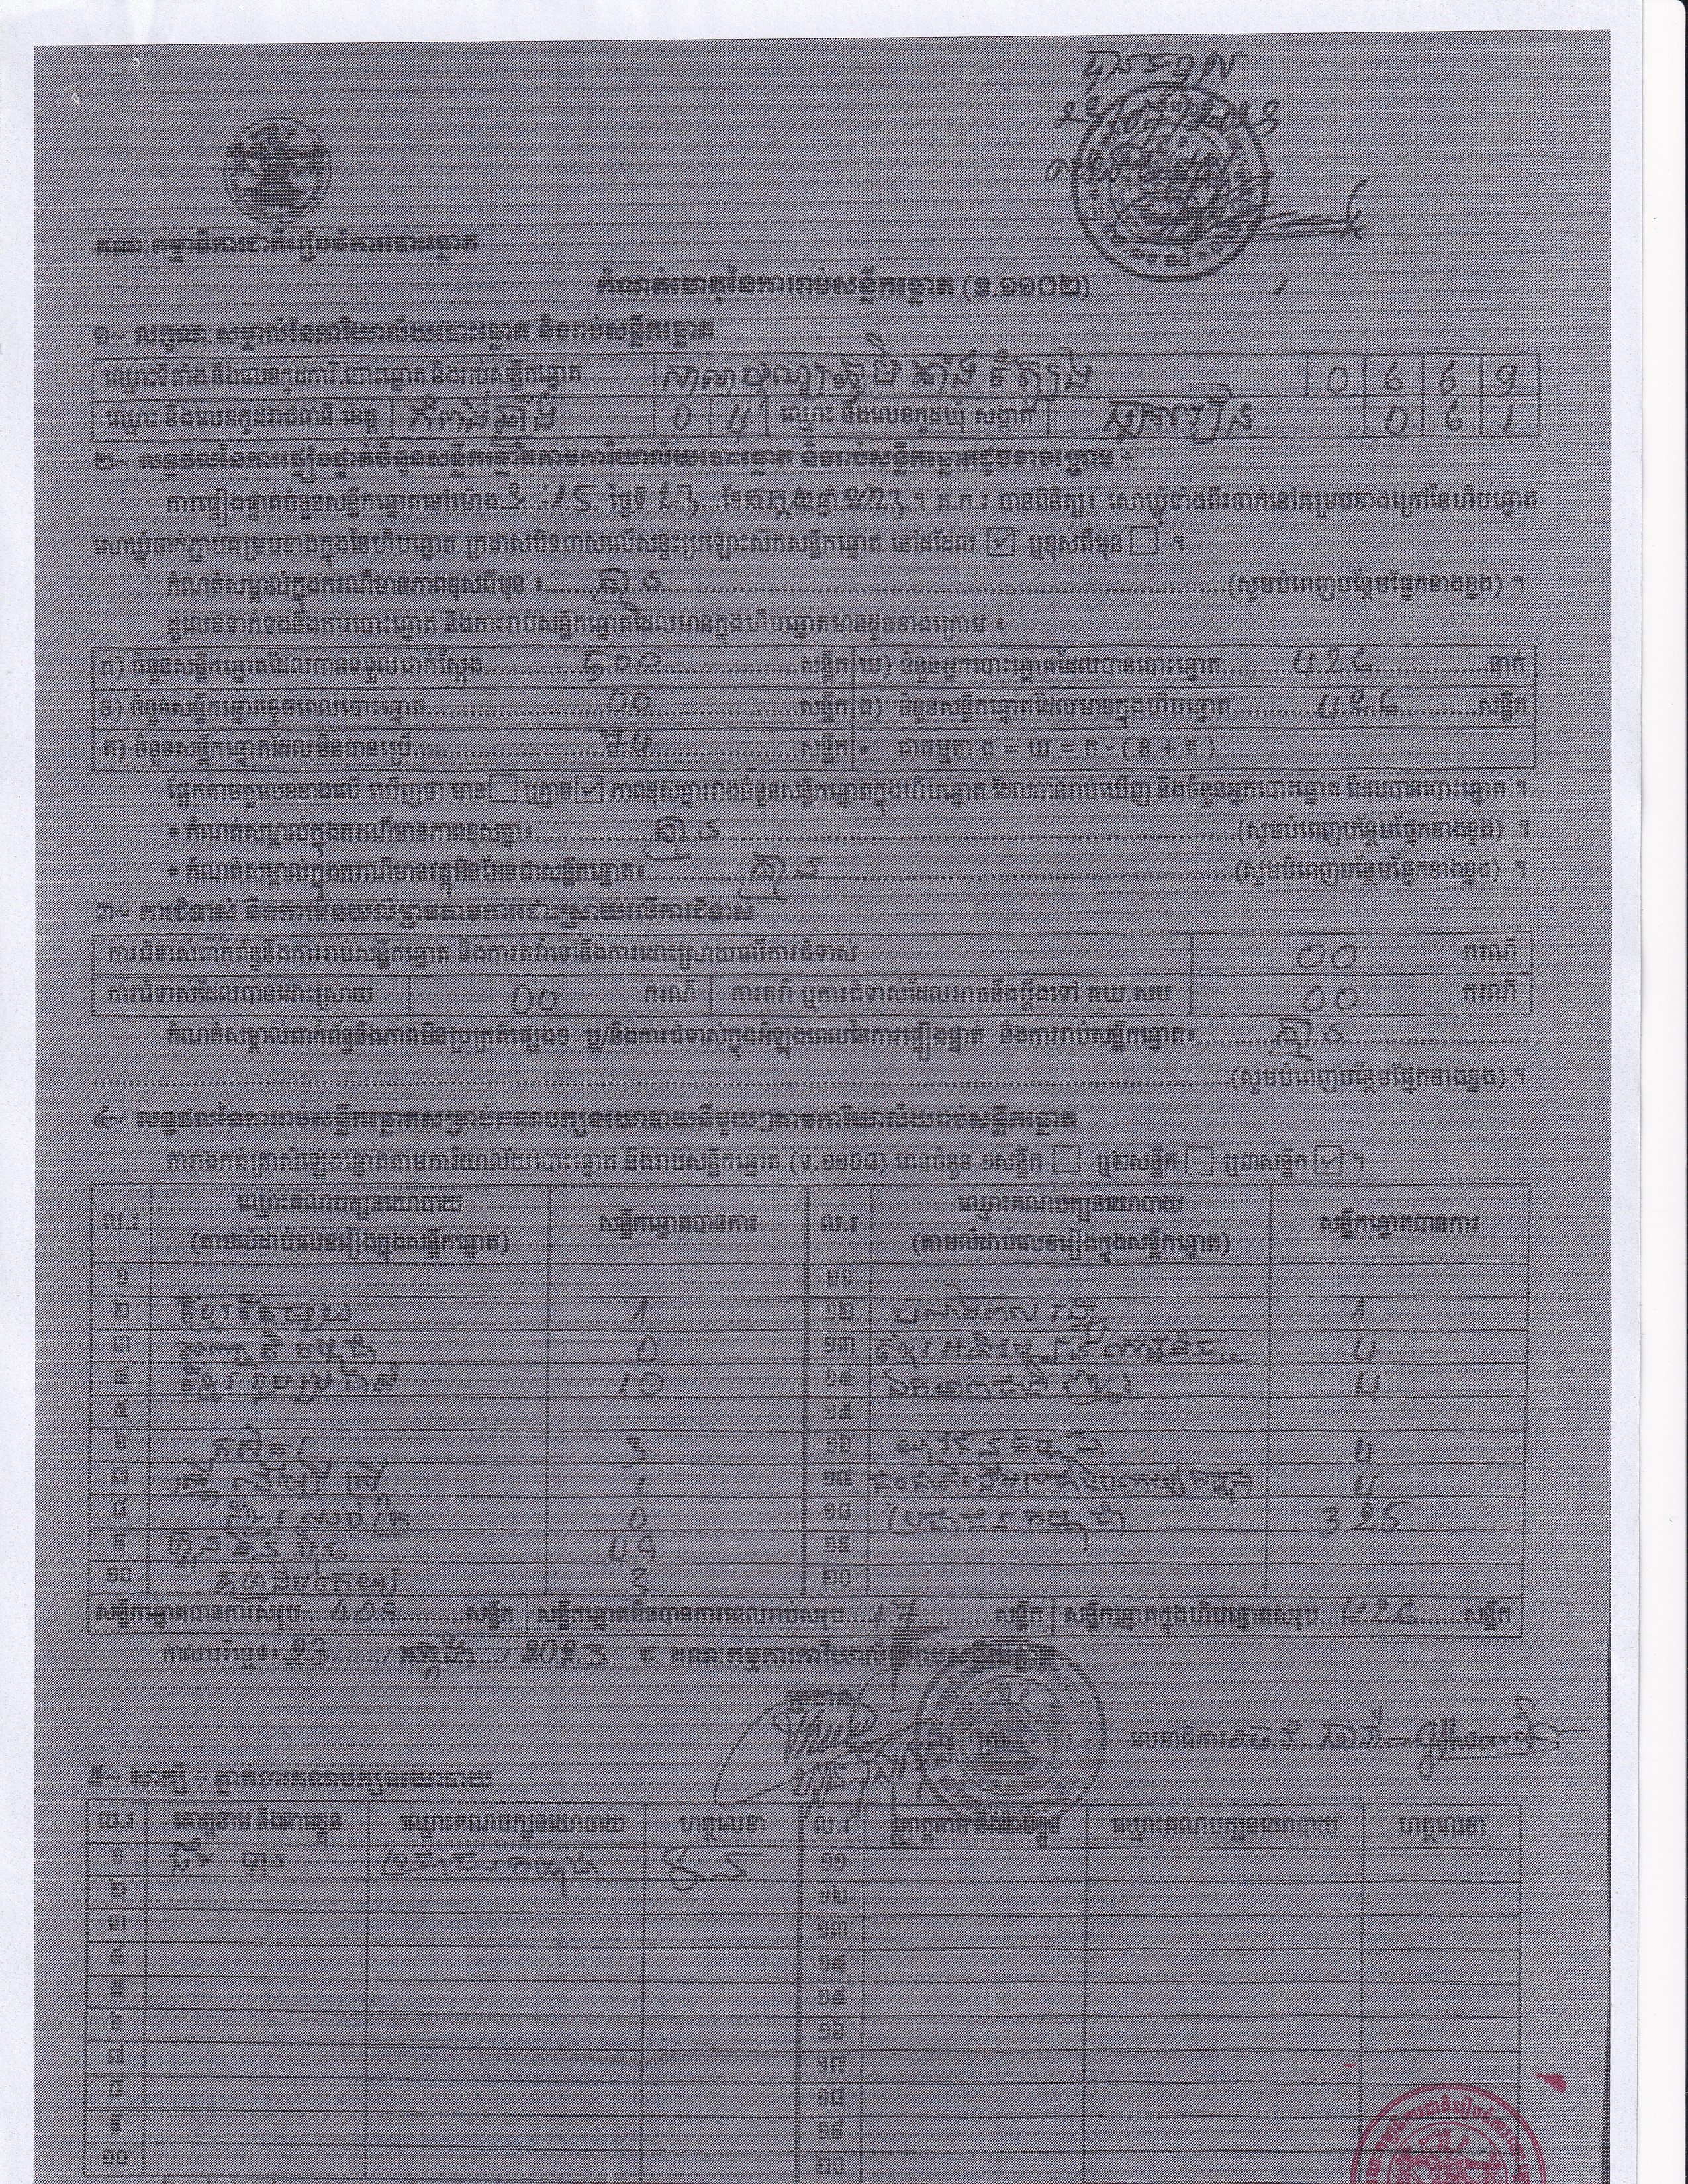 គណៈកម្មាធិការជាតិរៀបចំការបោះឆ្នោត
កំណត់ហេតុនៃការរាប់សន្លឹកឆ្នោត (ទ.១១០២)
១~ លក្ខណៈសម្គាល់នៃការិយាល័យបោះឆ្នោត និងរាប់សន្លឹកឆ្នោត
ឈ្មោះទីតាំង និងលេខកូដការិ.បោះឆ្នោត និងរាប់សន្លឹកឆ្នោត 0 6 6 9
ឈ្មោះ និងលេខកូដរាជធានី ខេត្ត កំពង់ឆ្នាំង 0 4 ឈ្មោះ និងលេខកូដឃុំ សង្កាត់ 0 6 1
២~ លទ្ធផលនៃការផ្ទៀងផ្ទាត់ចំនួនសន្លឹកឆ្នោតតាមការិយាល័យបោះឆ្នោត និងរាប់សន្លឹកឆ្នោតដូចខាងក្រោម ÷
ការផ្ទៀងផ្ទាត់ចំនួនសន្លឹកឆ្នោតនៅម៉ោង 3:15 ថ្ងៃទី 23 ខែកក្កដា ឆ្នាំ 2023 ។ គ.ក.រ បានពិនិត្យ៖ សោឃ្មុំទាំងពីរចាក់នៅគម្របខាងក្រៅនៃហិបឆ្នោត
សោឃ្មុំចាក់ភ្ជាប់គម្របខាងក្នុងនៃហិបឆ្នោត ក្រដាសបិទពាសលើសន្ទះប្រឡោះសិកសន្លឹកឆ្នោត នៅដដែល ☑ ឬខុសពីមុន ☐ ។
កំណត់សម្គាល់ក្នុងករណីមានភាពខុសពីមុន ៖ គ្មាន (សូមបំពេញបន្ថែមផ្នែកខាងខ្នង) ។
តួលេខទាក់ទងនឹងការបោះឆ្នោត និងការរាប់សន្លឹកឆ្នោតដែលមានក្នុងហិបឆ្នោតមានដូចខាងក្រោម ៖
ក) ចំនួនសន្លឹកឆ្នោតដែលបានទទួលជាក់ស្តែង 500 សន្លឹក ឃ) ចំនួនអ្នកបោះឆ្នោតដែលបានបោះឆ្នោត 426 នាក់
ខ) ចំនួនសន្លឹកឆ្នោតខូចពេលបោះឆ្នោត 00 សន្លឹក ង) ចំនួនសន្លឹកឆ្នោតដែលមានក្នុងហិបឆ្នោត 426 សន្លឹក
គ) ចំនួនសន្លឹកឆ្នោតដែលមិនបានប្រើ 74 សន្លឹក • ជាធម្មតា ង = ឃ = ក - ( ខ + គ )
ផ្អែកតាមតួលេខខាងលើ ឃើញថា មាន ☐ ឬគ្មាន ☑ ភាពខុសគ្នារវាងចំនួនសន្លឹកឆ្នោតក្នុងហិបឆ្នោត ដែលបានរាប់ឃើញ និងចំនួនអ្នកបោះឆ្នោត ដែលបានបោះឆ្នោត ។
• កំណត់សម្គាល់ក្នុងករណីមានភាពខុសគ្នា៖ គ្មាន (សូមបំពេញបន្ថែមផ្នែកខាងខ្នង) ។
• កំណត់សម្គាល់ក្នុងករណីមានវត្ថុមិនមែនជាសន្លឹកឆ្នោត៖ គ្មាន (សូមបំពេញបន្ថែមផ្នែកខាងខ្នង) ។
៣~ ការជំទាស់ និងការមិនយល់ព្រមតាមការដោះស្រាយលើការជំទាស់
ការជំទាស់ពាក់ព័ន្ធនឹងការរាប់សន្លឹកឆ្នោត និងការតវ៉ាទៅនឹងការដោះស្រាយលើការជំទាស់ 00 ករណី
ការជំទាស់ដែលបានដោះស្រាយ 00 ករណី ការតវ៉ា ឬការជំទាស់ដែលអាចនឹងប្តឹងទៅ គឃ.សប 00 ករណី
កំណត់សម្គាល់ពាក់ព័ន្ធនឹងភាពមិនប្រក្រតីផ្សេងៗ ឬ/និងការជំទាស់ក្នុងអំឡុងពេលនៃការផ្ទៀងផ្ទាត់ និងការរាប់សន្លឹកឆ្នោត៖ គ្មាន
(សូមបំពេញបន្ថែមផ្នែកខាងខ្នង) ។
៤~ លទ្ធផលនៃការរាប់សន្លឹកឆ្នោតសម្រាប់គណបក្សនយោបាយនីមួយៗតាមការិយាល័យរាប់សន្លឹកឆ្នោត
តារាងកត់ត្រាសំឡេងឆ្នោតតាមការិយាល័យបោះឆ្នោត និងរាប់សន្លឹកឆ្នោត (ទ.១១០៨) មានចំនួន ១សន្លឹក ☐ ឬ២សន្លឹក ☐ ឬ៣សន្លឹក ☑ ។
ល.រ ឈ្មោះគណបក្សនយោបាយ សន្លឹកឆ្នោតបានការ ល.រ ឈ្មោះគណបក្សនយោបាយ សន្លឹកឆ្នោតបានការ
(តាមលំដាប់លេខរៀងក្នុងសន្លឹកឆ្នោត) (តាមលំដាប់លេខរៀងក្នុងសន្លឹកឆ្នោត)
១ ១១
២ 1 ១២ 1
៣ 0 ១៣ 4
៤ ខ្មែររួបរួមជាតិ 10 ១៤ ឯកភាពជាតិខ្មែរ 4
៥ ១៥
៦ កសិករ 3 ១៦ 4
៧ 1 ១៧ 4
៨ 0 ១៨ ប្រជាជនកម្ពុជា 325
៩ ហ៊្វុនស៊ិនប៉ិច 49 ១៩
១០ 3 ២០
សន្លឹកឆ្នោតបានការសរុប 409 សន្លឹក សន្លឹកឆ្នោតមិនបានការពេលរាប់សរុប 17 សន្លឹក សន្លឹកឆ្នោតក្នុងហិបឆ្នោតសរុប 426 សន្លឹក
កាលបរិច្ឆេទ៖ 23 / កក្កដា / 2023 ជ. គណៈកម្មការការិយាល័យរាប់សន្លឹកឆ្នោត
ប្រធាន
លេខាធិការ
៥~ សាក្សី ÷ ភ្នាក់ងារគណបក្សនយោបាយ
ល.រ គោត្តនាម និងនាមខ្លួន ឈ្មោះគណបក្សនយោបាយ ហត្ថលេខា ល.រ គោត្តនាម និងនាមខ្លួន ឈ្មោះគណបក្សនយោបាយ ហត្ថលេខា
១ ប្រជាជនកម្ពុជា ១១
២ ១២
៣ ១៣
៤ ១៤
៥ ១៥
៦ ១៦
៧ ១៧
៨ ១៨
៩ ១៩
១០ ២០